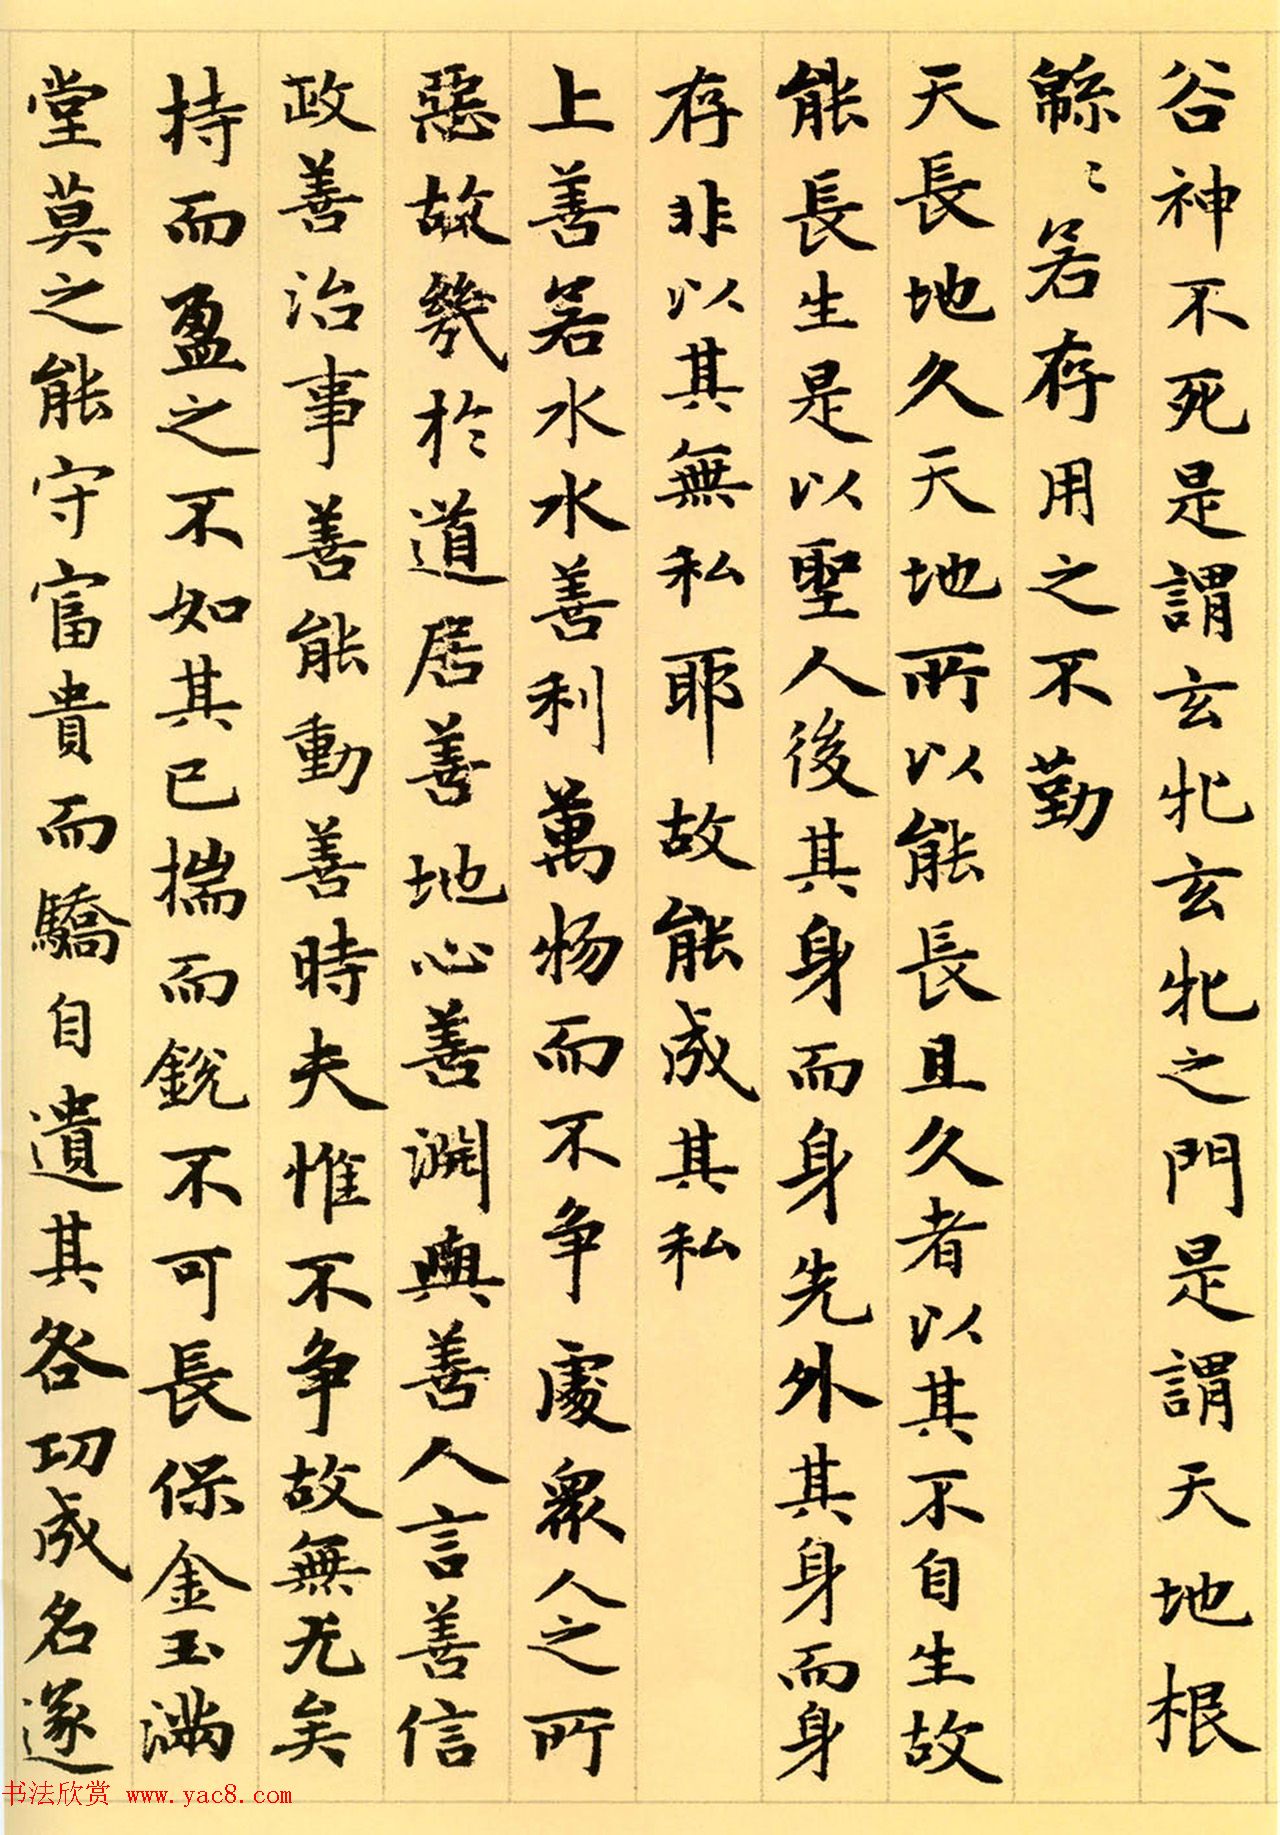 谷神不死是謂玄牝玄牝之門是謂天地根
緜〻若存用之不勤
天長地久天地所以能長且久者以其不自生故
能長生是以聖人後其身而身先外其身而身
存非以其無私耶故能成其私
上善若水水善利萬物而不争處衆人之所
惡故幾於道居善地心善淵與善人言善信
政善治事善能動善時夫惟不争故無尤矣
持而盈之不如其已揣而銳不可長保金玉滿
堂莫之能守富貴而驕自遺其咎功成名遂
书法欣赏 www.yac8.com